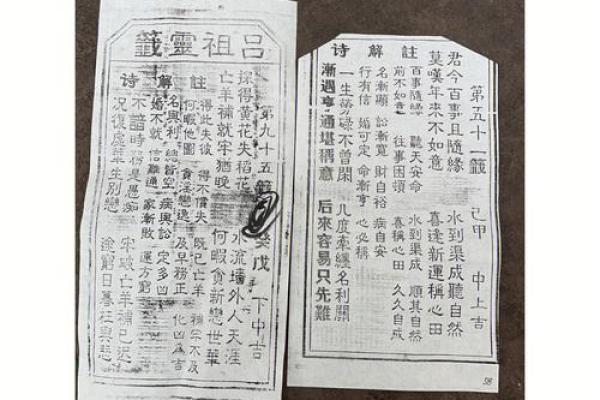 註解诗
第五十一籤 己甲 中上吉
君今百事且隨緣 水到渠成聽自然
莫嘆年來不如意 喜逢新運稱心田
百事隨緣 聽天安命 水到渠成 順其自然
前不如意 往事困頓 喜稱心田 久久自成
名漸顯 訟漸寬 財自裕 病自安
行有信 婚可定 命漸亨 心必稱
一生勞碌不曾閑 几度牽纏名利關
漸遇亨通堪稱意 后來容易只先難
呂祖靈籤
註解诗
第九十五籤 癸戊 下中吉
採得黃花失稻花 水流墻外人天涯
亡羊補就牢猶晚 何暇貪新戀世華
得此失彼 得不償失 既已亡羊 補牢不及
何暇他圖 貪淫戀逸 及早務正 化凶爲吉
名與利 總皆空 病與訟 定多凶
婚不就 信難通 家漸敗 運方窮
不諳時務是愚痴 牢破亡羊補已遲
況復虛華生別戀 途窮日暮枉興悲